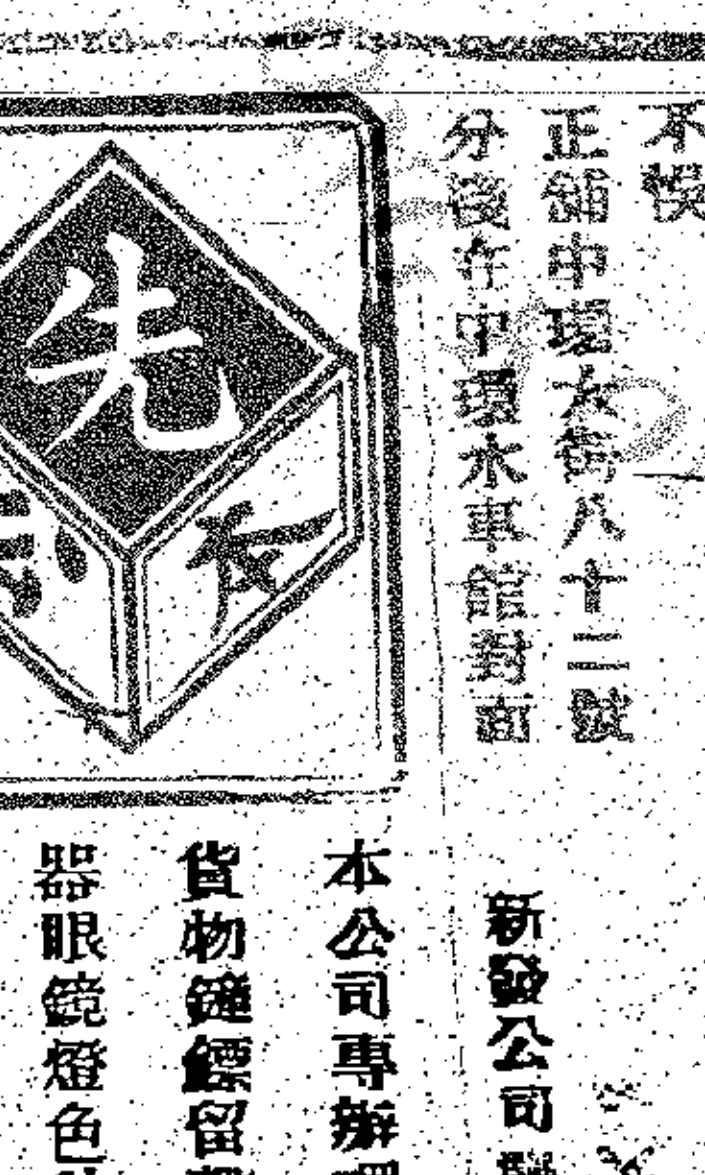 不誤
正舖中環大街八十二號
分後在中環水車館對面
先
長
新發公司
本公司專辦
貨物鐘鏢留
器眼鏡燈色